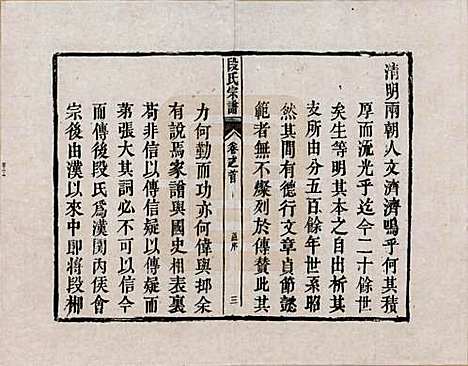 清明兩朝人文濟濟嗚乎何其積
厚而流光乎迄今二十餘世
矣生等明其本之自出析其
支所由分五百餘年世系昭
然其間有德行文章貞節懿
範者無不燦列於傳贊此其
段氏宗譜
卷之首
三
力何勤而功亦何偉與挪余
有說焉家譜與國史相表裏
苟非信以傳信疑以傳疑而
第張大其詞必不可以信今
而傳後段氏為漢関內侯會
宗後由漢以來中郎將段郴